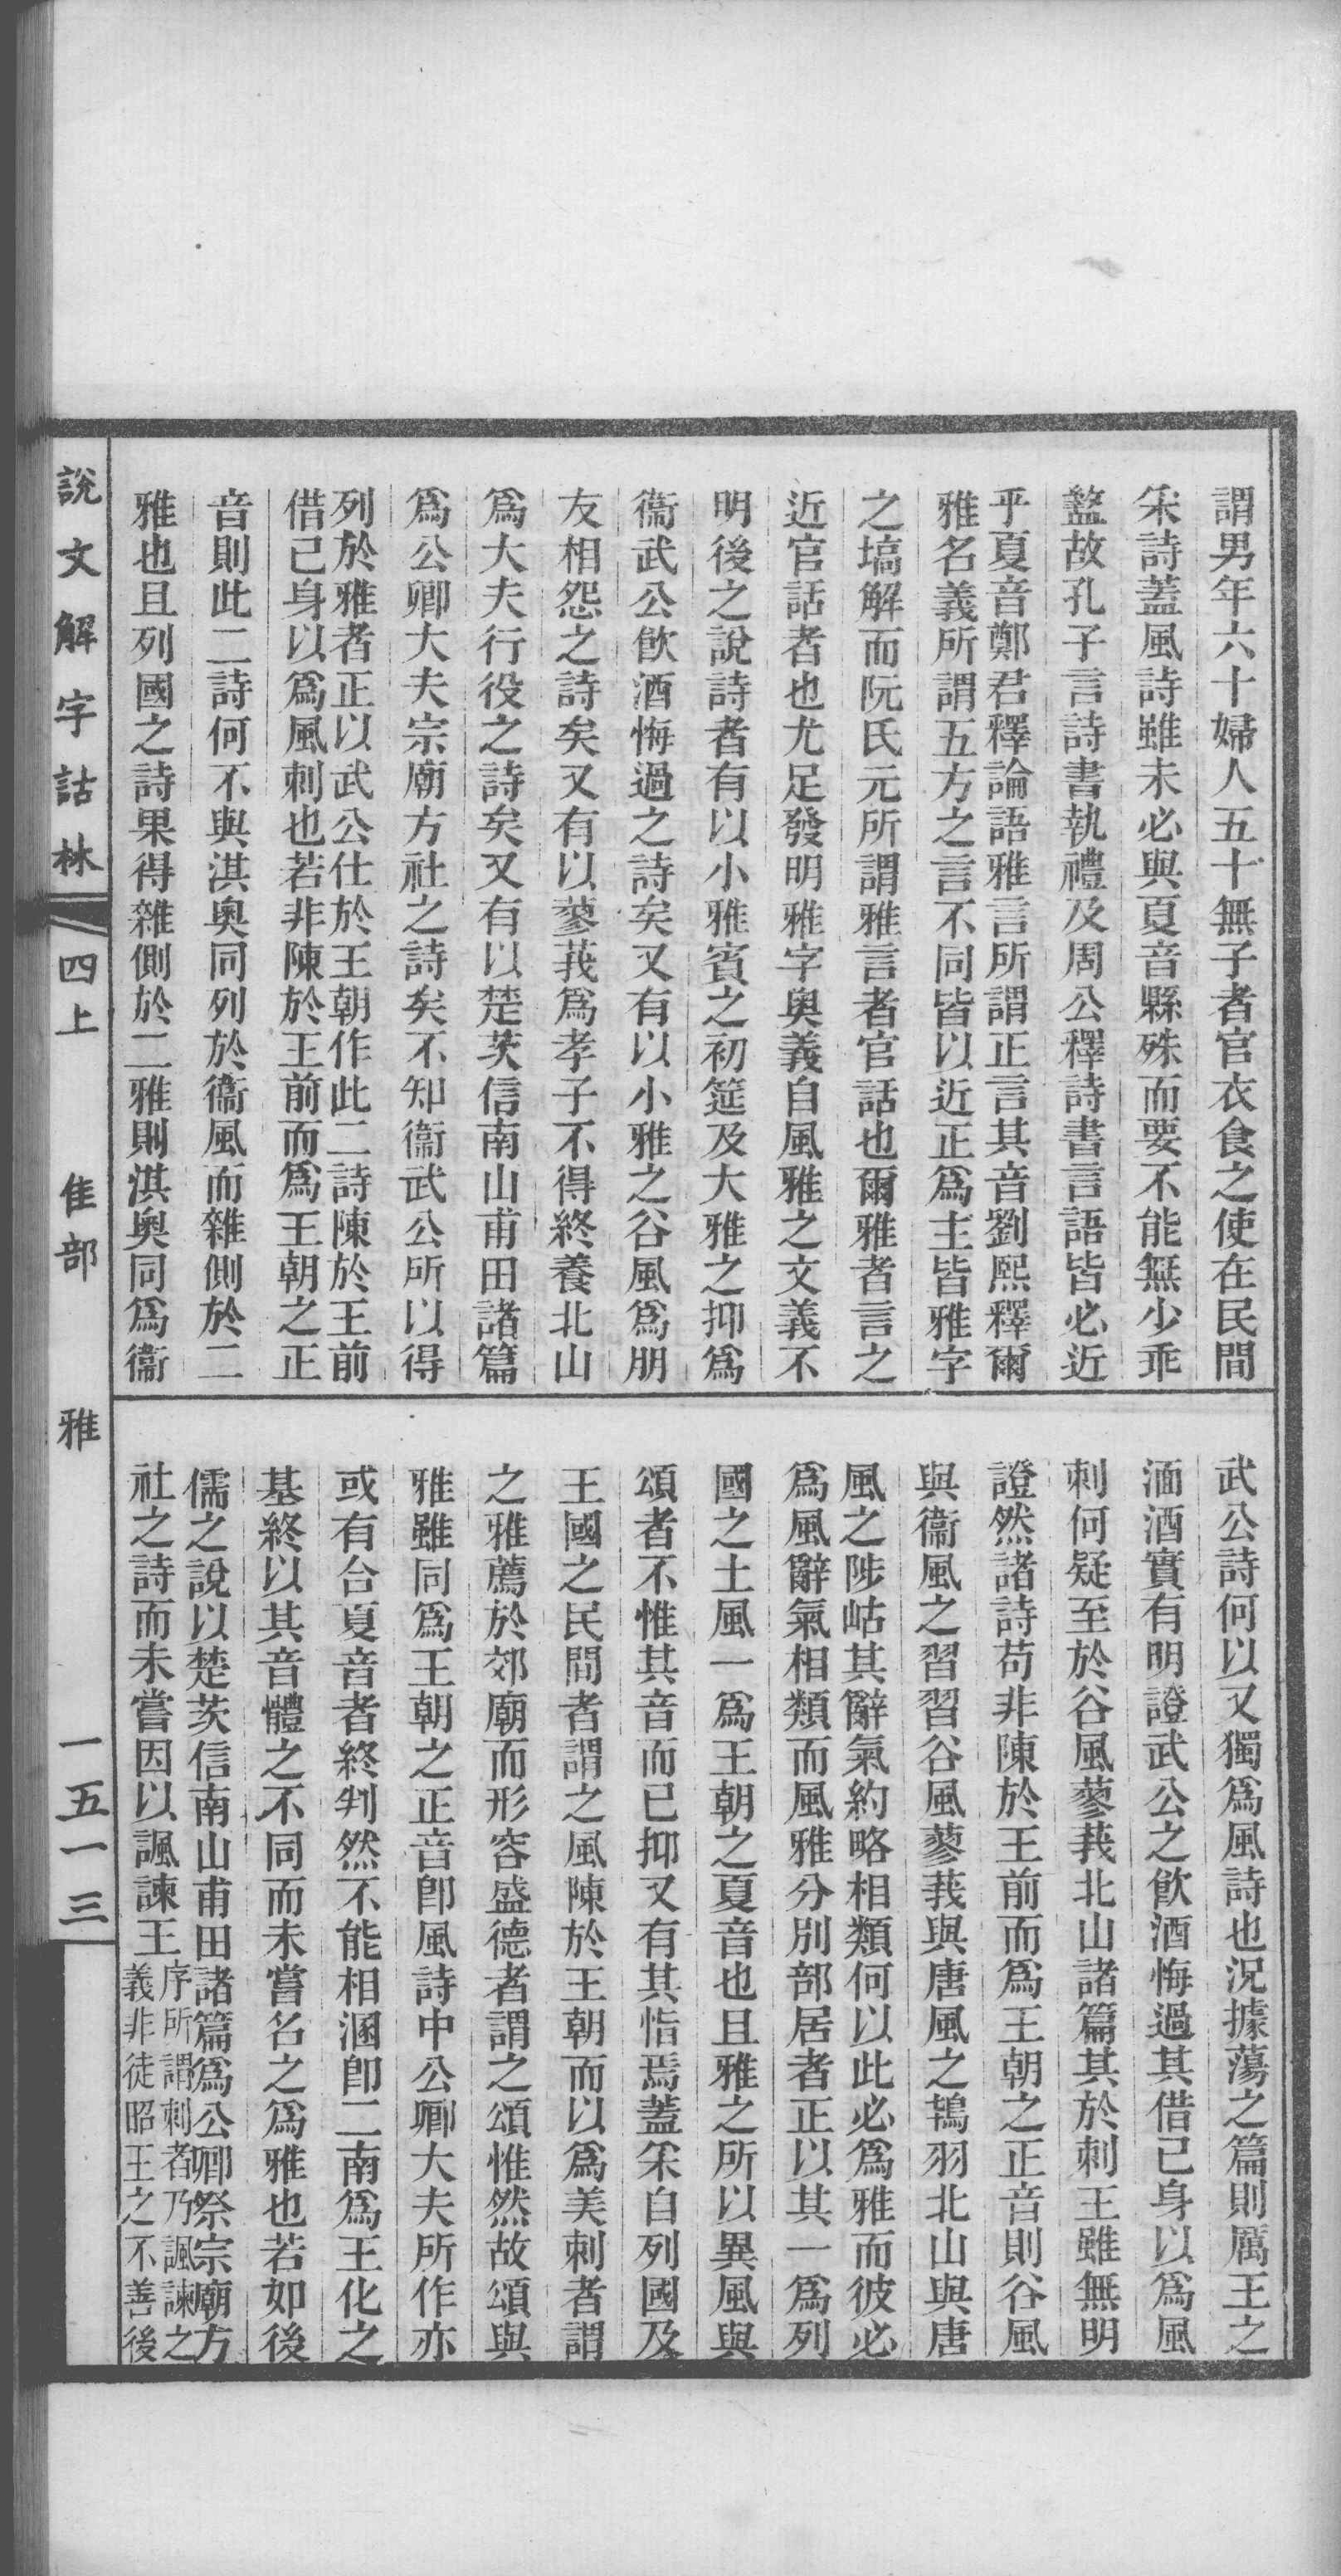 謂男年六十婦人五十無子者官衣食之使在民間
采詩蓋風詩雖未必與夏音縣殊而要不能無少乖
盭故孔子言詩書執禮及周公釋詩書言語皆必近
乎夏音鄭君釋論語雅言所謂正言其音劉熙釋爾
雅名義所謂五方之言不同皆以近正爲主皆雅字
之塙解而阮氏元所謂雅言者官話也爾雅者言之
近官話者也尤足發明雅字奥義自風雅之文義不
明後之說詩者有以小雅賓之初筵及大雅之抑爲
衞武公飮酒悔過之詩矣又有以小雅之谷風爲朋
友相怨之詩矣又有以蓼莪爲孝子不得終養北山
爲大夫行役之詩矣又有以楚茨信南山甫田諸篇
爲公卿大夫宗廟方社之詩矣不知衞武公所以得
列於雅者正以武公仕於王朝作此二詩陳於王前
借己身以爲風刺也若非陳於王前而爲王朝之正
音則此二詩何不與淇奥同列於衞風而雜側於二
雅也且列國之詩果得雜側於二雅則淇奥同爲衞
武公詩何以又獨爲風詩也況據蕩之篇則厲王之
湎酒實有明證武公之飮酒悔過其借己身以爲風
刺何疑至於谷風蓼莪北山諸篇其於刺王雖無明
證然諸詩苟非陳於王前而爲王朝之正音則谷風
與衞風之習習谷風蓼莪與唐風之鴇羽北山與唐
風之陟岵其辭氣約略相類何以此必爲雅而彼必
爲風辭氣相類而風雅分別部居者正以其一爲列
國之土風一爲王朝之夏音也且雅之所以異風與
頌者不惟其音而已抑又有其恉焉蓋采自列國及
王國之民間者謂之風陳於王朝而以爲美刺者謂
之雅薦於郊廟而形容盛德者謂之頌惟然故頌與
雅雖同爲王朝之正音卽風詩中公卿大夫所作亦
或有合夏音者終判然不能相溷卽二南爲王化之
基終以其音體之不同而未嘗名之爲雅也若如後
儒之說以楚茨信南山甫田諸篇爲公卿祭宗廟方
社之詩而未嘗因以諷諫王序所謂刺者乃諷諫之
義非徒昭王之不善後
說文解字詁林 四上 隹部 雅 一五一三